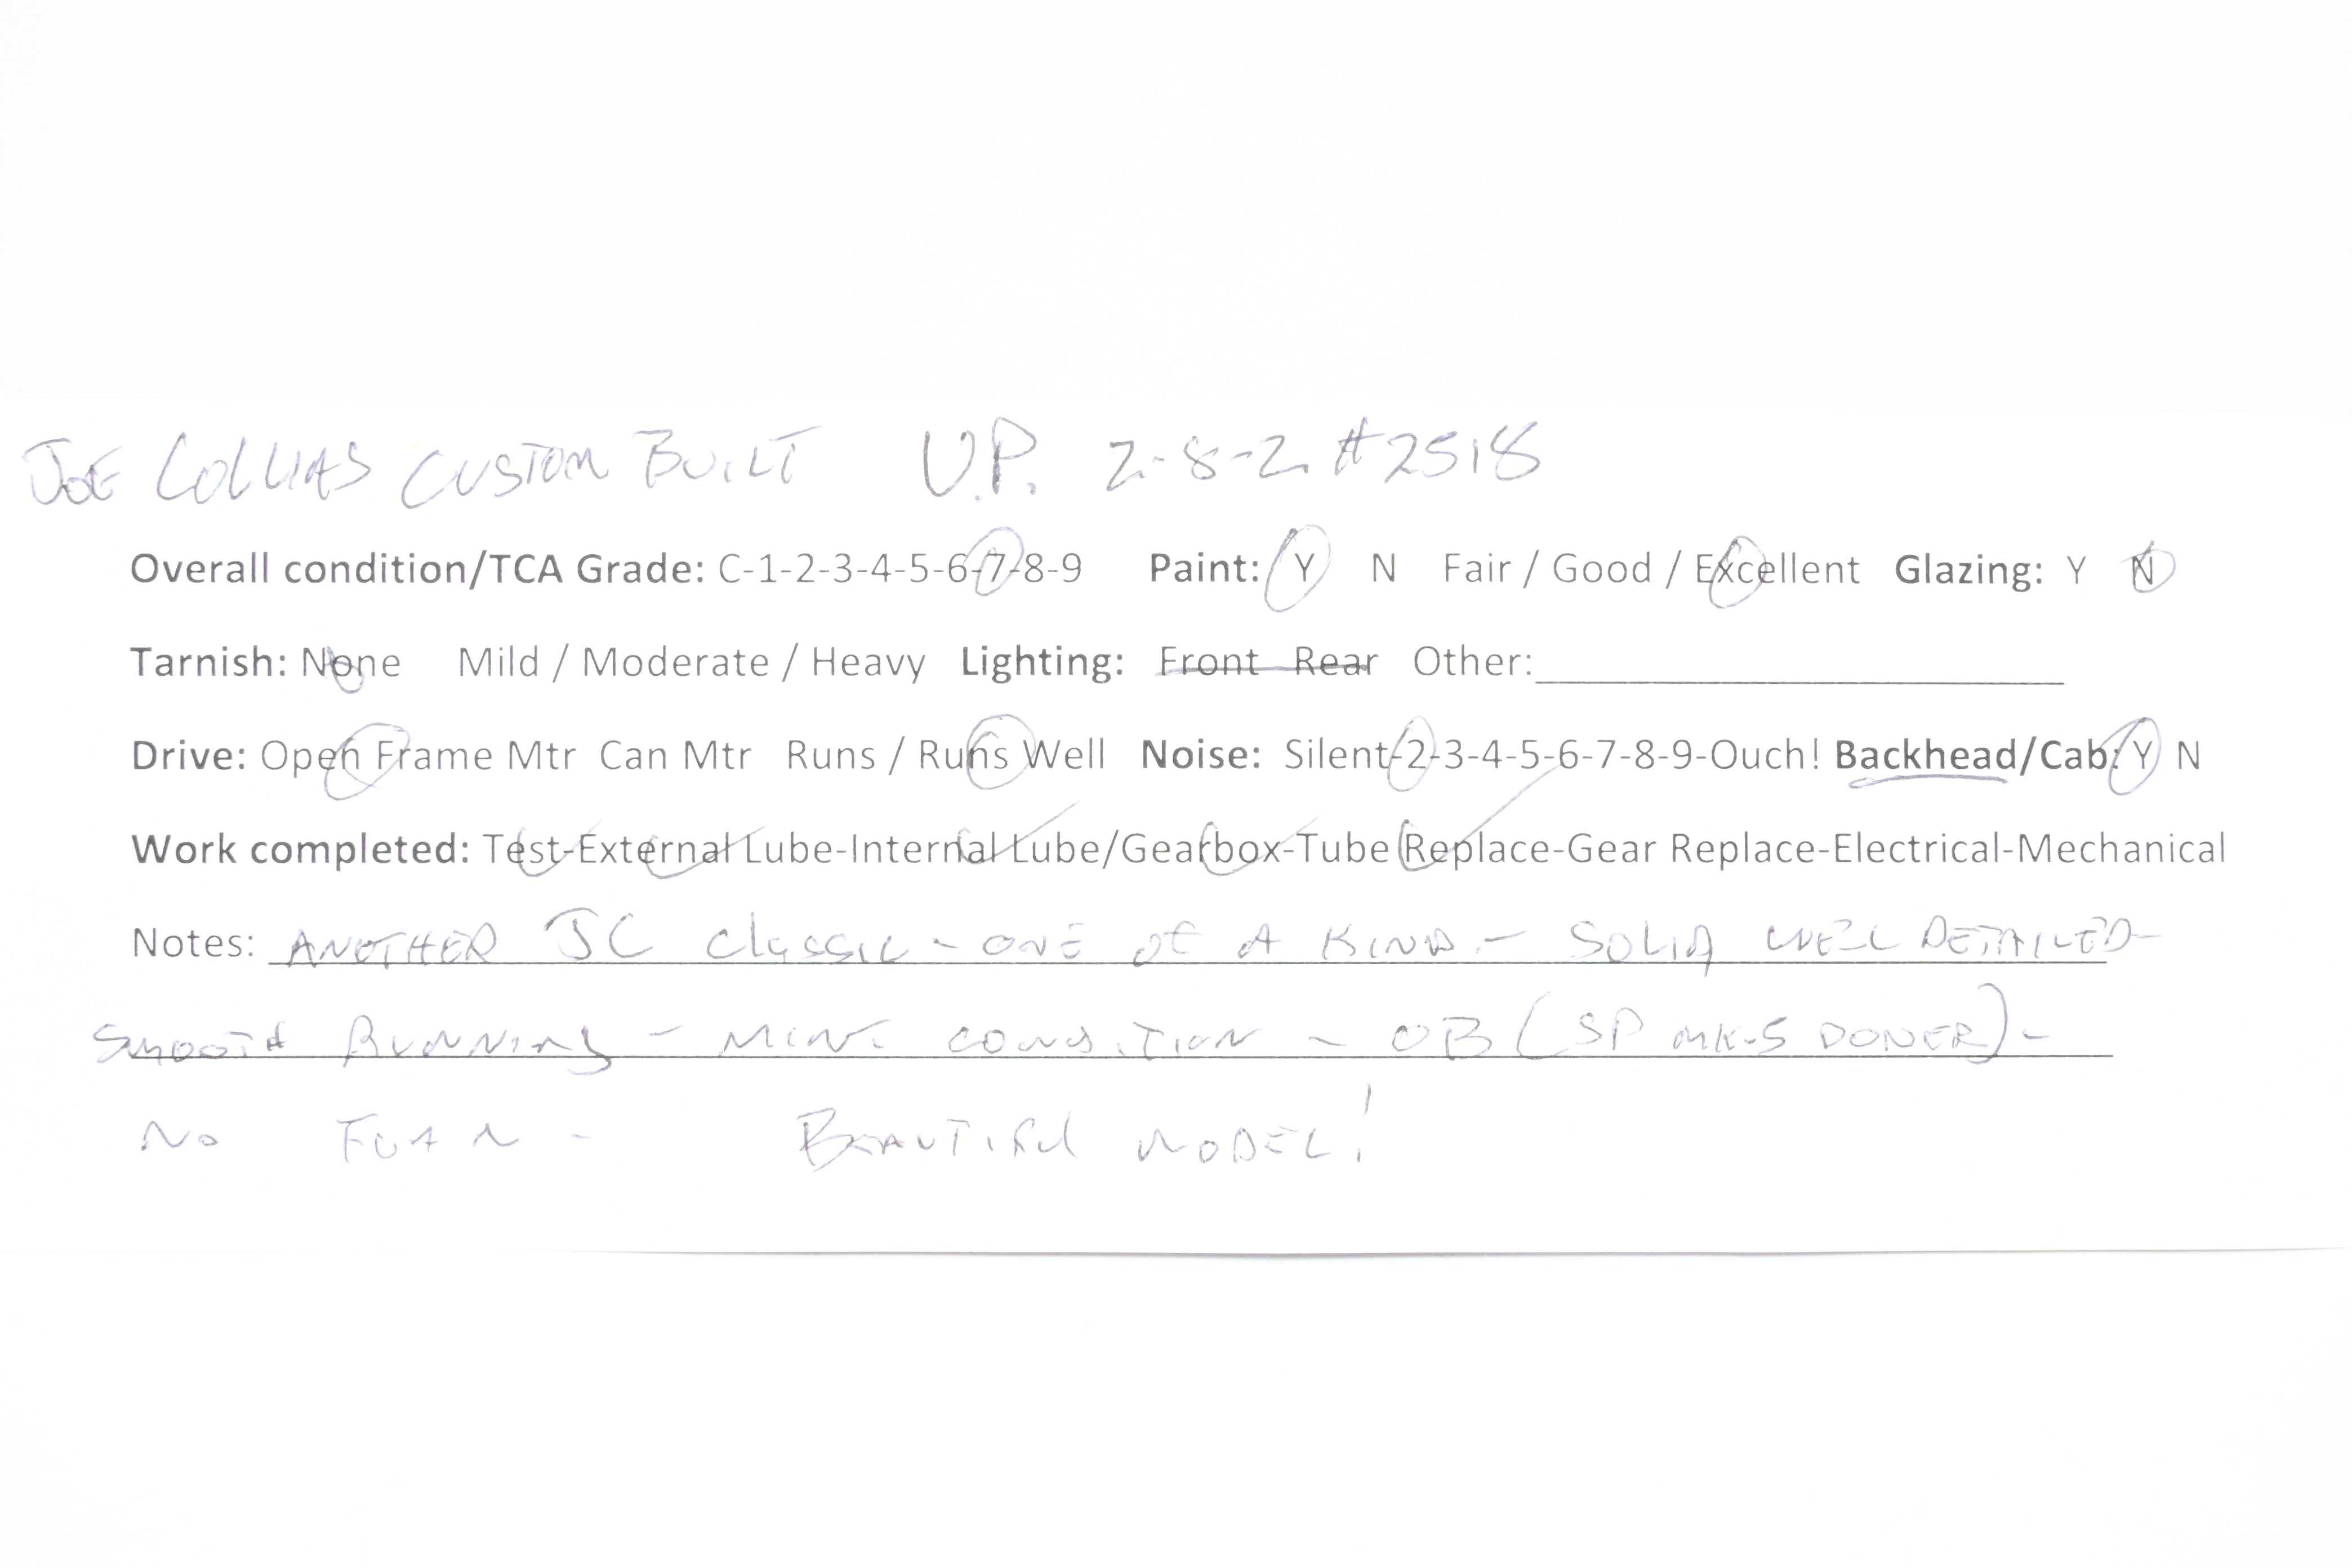 JOE COLLIAS CUSTOM BUILT U.P. 2-8-2 #2518
Overall condition/TCA Grade: C-1-2-3-4-5-6-7-8-9 Paint: Y N Fair / Good / Excellent Glazing: Y N
Tarnish: None Mild / Moderate / Heavy Lighting: Front Rear Other:
Drive: Open Frame Mtr Can Mtr Runs / Runs Well Noise: Silent-2-3-4-5-6-7-8-9-Ouch! Backhead/Cab: Y N
Work completed: Test-External Lube-Internal Lube/Gearbox-Tube Replace-Gear Replace-Electrical-Mechanical
Notes: ANOTHER JC Classic - ONE OF A KIND - SOLID WELL DETAILED-
SMOOTH RUNNING - MINT CONDITION - OB (SP MK-5 DONER) -
NO FOAM - BEAUTIFUL MODEL!